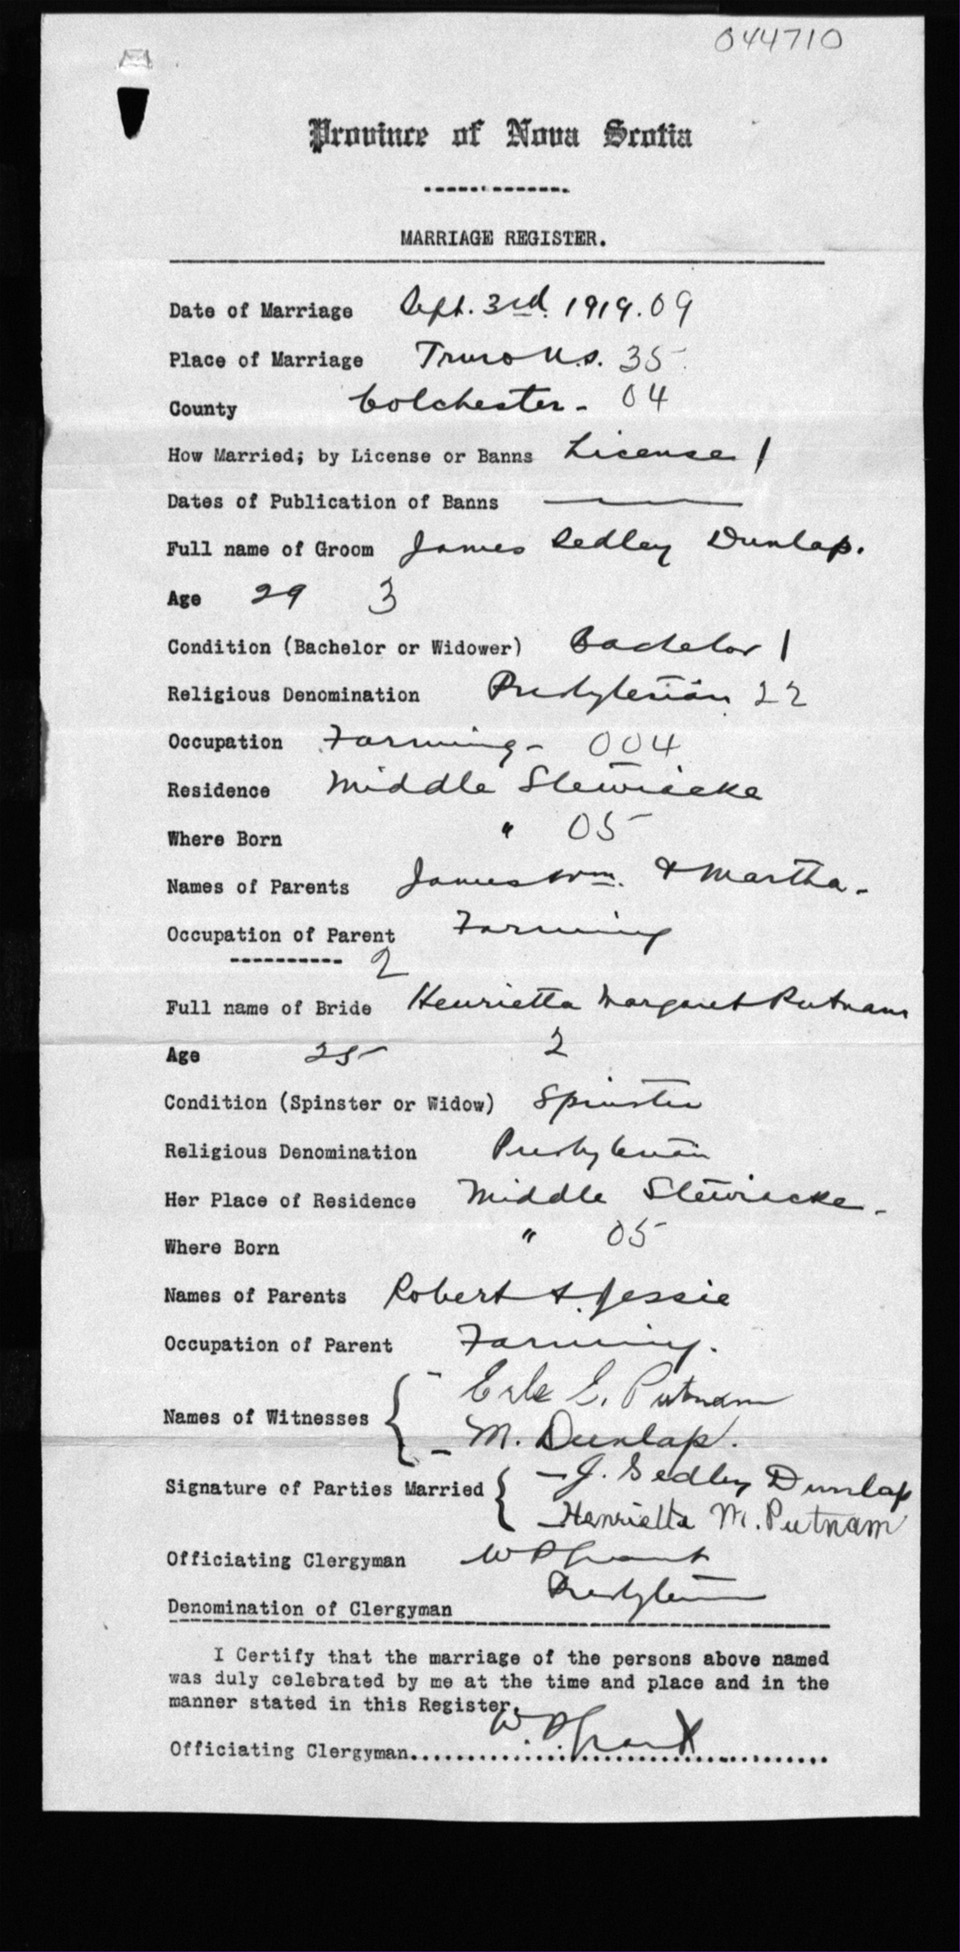 044710
Province of Nova Scotia
MARRIAGE REGISTER.
Date of Marriage Sept. 3rd. 1919. 09
Place of Marriage Truro N.S. 35
County Colchester - 04
How Married; by License or Banns License 1
Dates of Publication of Banns ———
Full name of Groom James Sedley Dunlap.
Age 29 3
Condition (Bachelor or Widower) Bachelor 1
Religious Denomination Presbyterian 22
Occupation Farming - 004
Residence Middle Stewiacke
Where Born " 05
Names of Parents James Wm. & Martha -
Occupation of Parent Farming
2
Full name of Bride Henrietta Margaret Putnam
Age 25 2
Condition (Spinster or Widow) Spinster
Religious Denomination Presbyterian
Her Place of Residence Middle Stewiacke -
Where Born " 05
Names of Parents Robert & Jessie
Occupation of Parent Farming.
Names of Witnesses { - Erle E. Putnam
- M. Dunlap.
Signature of Parties Married { - J. Sedley Dunlap
- Henrietta M. Putnam
Officiating Clergyman W P Grant
Denomination of Clergyman Presbyterian
I Certify that the marriage of the persons above named
was duly celebrated by me at the time and place and in the
manner stated in this Register.
Officiating Clergyman W. P. Grant